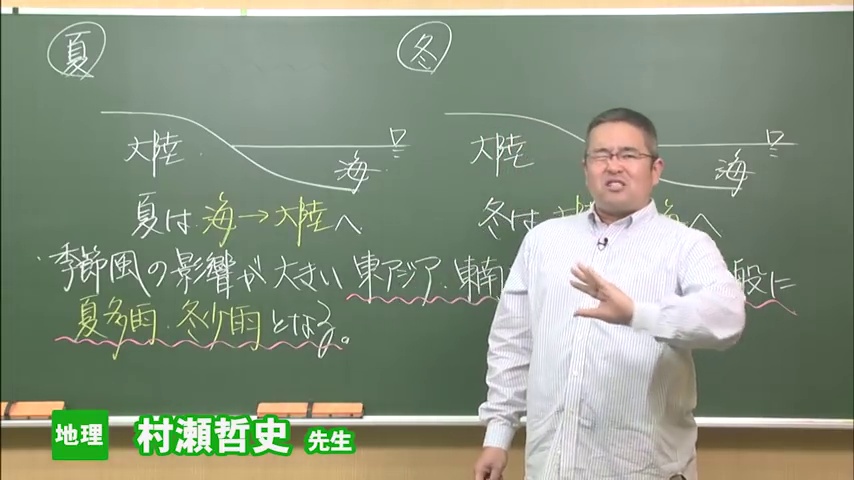 夏
冬
大陸
海
大陸
海
夏は 海→大陸へ
冬は 大陸 海へ
季節風の影響が大きい 東アジア・東南 般に
夏多雨・冬少雨となる。
地理 村瀬哲史 先生